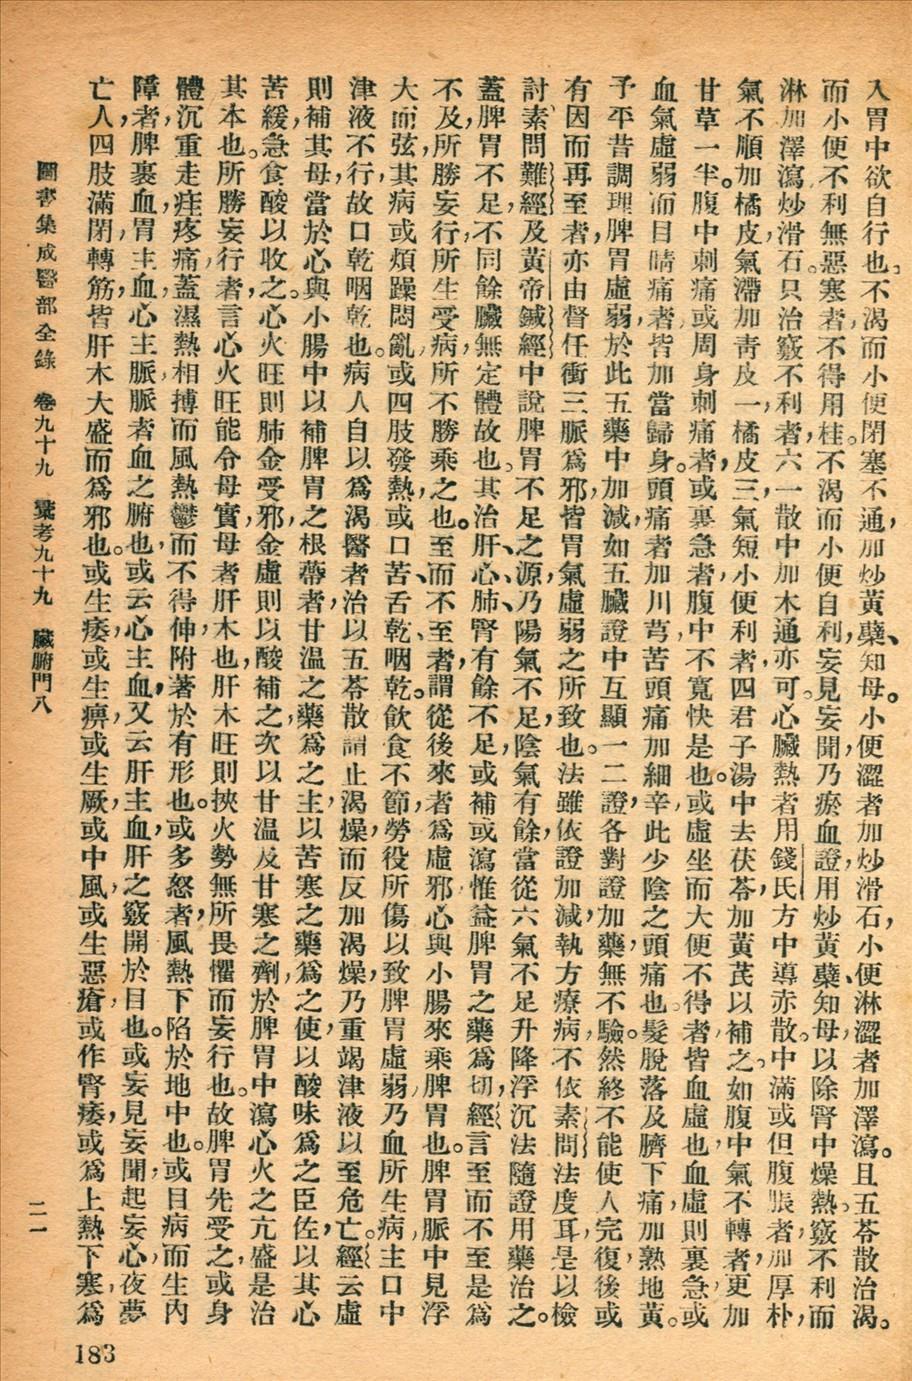 入胃中欲自行也。不渴而小便閉塞不通,加炒黃蘗、知母。小便澀者加炒滑石,小便淋澀者加澤瀉。且五苓散治渴。
而小便不利無惡寒者,不得用桂。不渴而小便自利,妄見妄聞,乃瘀血證,用炒黃蘗、知母,以除腎中燥熱。竅不利而
淋加澤瀉炒滑石。只治竅不利者,六一散中加木通亦可。心臟熱者,用錢氏方中導赤散。中滿或但腹脹者,加厚朴,
氣不順加橘皮,氣滯加青皮一,橘皮三,氣短小便利者,四君子湯中去茯苓,加黃芪以補之。如腹中氣不轉者,更加
甘草一半。腹中刺痛,或周身刺痛者,或裏急者,腹中不寬快是也。或虛坐而大便不得者,皆血虛也,血虛則裏急,或
血氣虛弱而目睛痛者,皆加當歸身。頭痛者加川芎,苦頭痛加細辛,此少陰之頭痛也。髮脫落及臍下痛,加熟地黃。
予平昔調理脾胃虛弱,於此五藥中加減,如五臟證中互顯一二證,各對證加藥,無不驗。然終不能使人完復,後或
有因而再至者,亦由督任衝三脈爲邪,皆胃氣虛弱之所致也。法雖依證加減,執方療病,不依素問法度耳,是以檢
討素問難經及黃帝鍼經中說脾胃不足之源,乃陽氣不足,陰氣有餘,當從六氣不足升降浮沉法隨證用藥治之。
蓋脾胃不足,不同餘臟,無定體故也。其治肝、心、肺、腎有餘不足,或補或瀉,惟益脾胃之藥爲切,經言至而不至是爲
不及,所勝妄行,所生受病,所不勝乘之也。至而不至者,謂從後來者爲虛邪,心與小腸來乘脾胃也。脾胃脈中見浮
大而弦,其病或煩躁悶亂,或四肢發熱,或口苦、舌乾、咽乾。飲食不節,勞役所傷,以致脾胃虛弱,乃血所生病,主口中
津液不行,故口乾咽乾也。病人自以爲渴,醫者治以五苓散,謂止渴燥,而反加渴燥,乃重竭津液,以至危亡。經云虛
則補其母,當於心與小腸中以補脾胃之根蔕者,甘温之藥爲之主,以苦寒之藥爲之使,以酸味爲之臣佐,以其心
苦緩,急食酸以收之。心火旺則肺金受邪,金虛則以酸補之,次以甘温及甘寒之劑,於脾胃中瀉心火之亢盛,是治
其本也。所勝妄行者,言心火旺能令母實,母者肝木也,肝木旺則挾火勢,無所畏懼而妄行也。故脾胃先受之,或身
體沉重走疰疼痛,蓋濕熱相搏,而風熱鬱而不得伸,附著於有形也。或多怒者,風熱下陷於地中也。或目病而生內
障者,脾裹血,胃主血,心主脈,脈者血之腑也,或云心主血,又云肝主血,肝之竅開於目也。或妄見妄聞,起妄心,夜夢
亡人,四肢滿閉,轉筋,皆肝木大盛而爲邪也。或生痿,或生痹,或生厥,或中風,或生惡瘡,或作腎痿,或爲上熱下寒,爲
圖書集成醫部全錄 卷九十九 彙考九十九 臟腑門八 二一
183